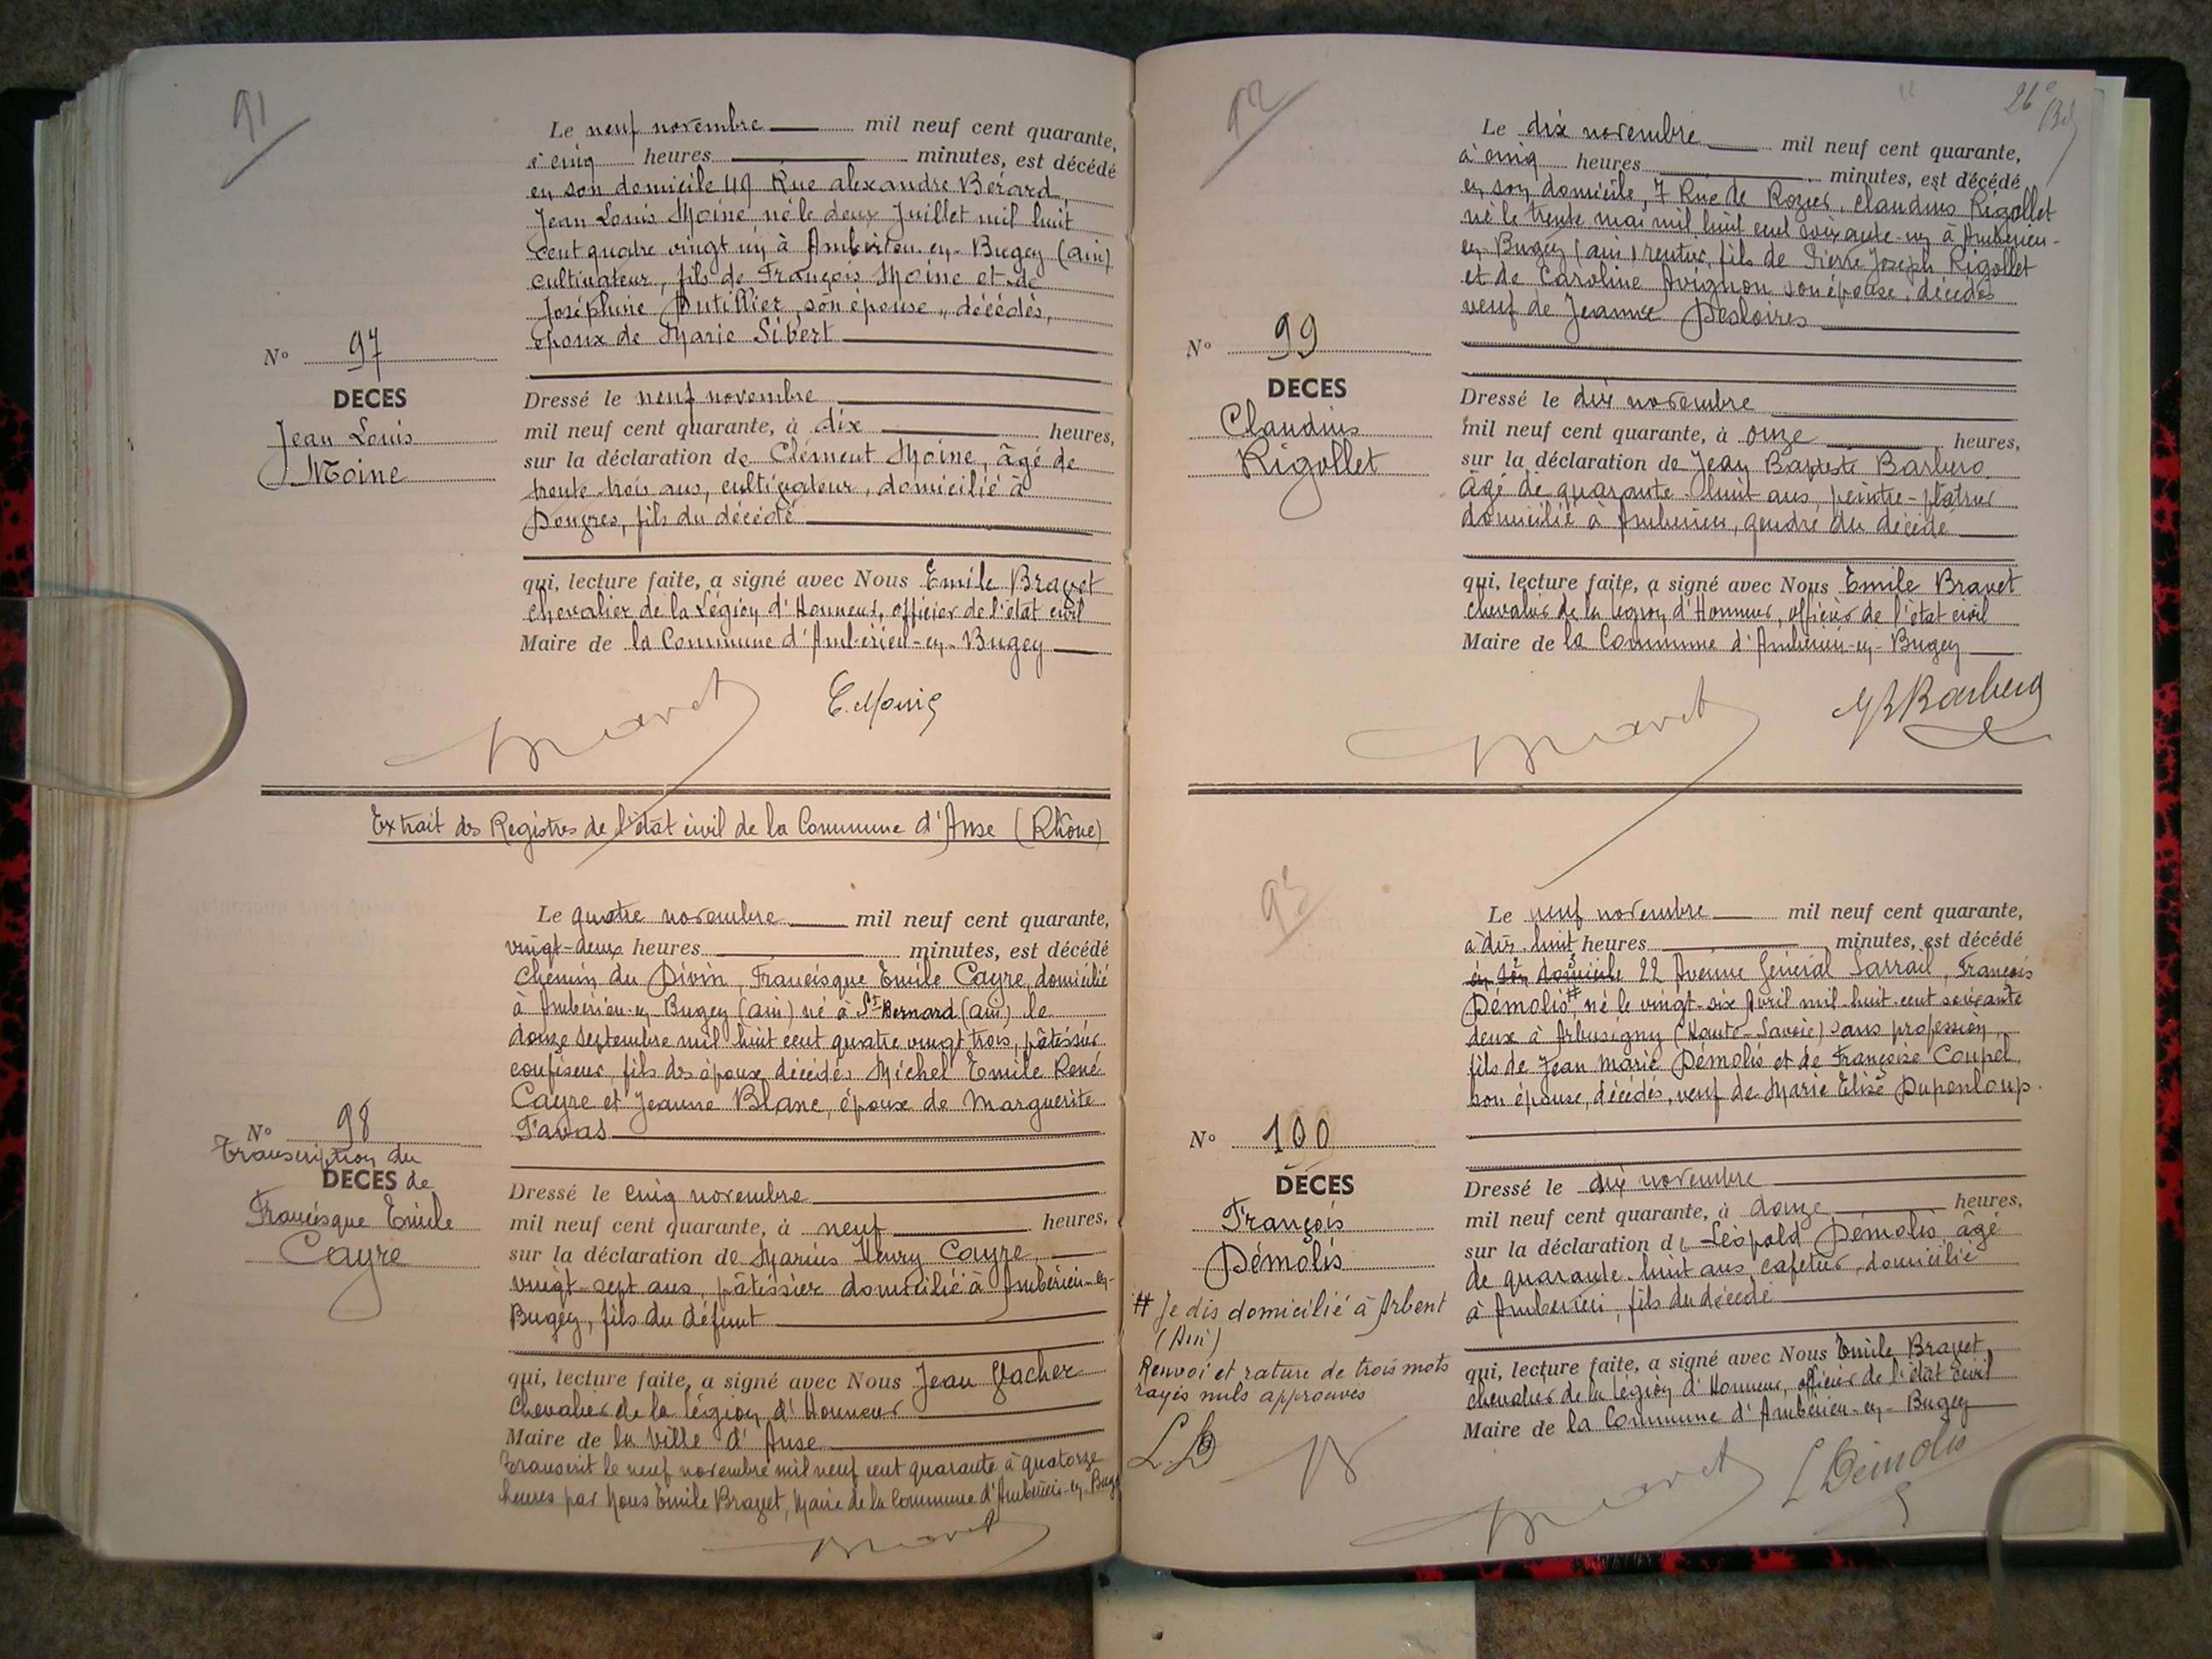 91
Le neuf novembre mil neuf cent quarante,
à cinq heures minutes, est décédé
en son domicile 49 Rue alexandre Bérard,
Jean Louis Moine né le deux Juillet mil huit
cent quatre vingt un à Ambérieu-en-Bugey (ain)
cultivateur, fils de François Moine et de
Joséphine Putillier, son épouse, décédés,
époux de Marie Sibert
N° 97
DECES
Jean Louis
Moine
Dressé le neuf novembre
mil neuf cent quarante, à dix heures,
sur la déclaration de Clément Moine, âgé de
trente-trois ans, cultivateur, domicilié à
Dongres, fils du décédé
qui, lecture faite, a signé avec Nous Emile Bravet
chevalier de la Légion d'Honneur, officier de l'état civil
Maire de la Commune d'Ambérieu-en-Bugey
Bravet
Extrait des Registres de l'état civil de la Commune d'Anse (Rhône)
Le quatre novembre mil neuf cent quarante,
vingt-deux heures minutes, est décédé
Chemin du Divin, Francisque Emile Cayre, domicilié
à Ambérieu-en-Bugey (ain) né à St Bernard (ain) le
douze septembre mil huit cent quatre vingt trois, pâtissier
confiseur, fils des époux décédés Michel Emile René
Cayre et Jeanne Blanc, époux de Marguerite
Favas
N° 98
Transcription du
DECES de
Francisque Emile
Cayre
Dressé le cinq novembre
mil neuf cent quarante, à neuf heures,
sur la déclaration de Marius Henry Cayre,
vingt-sept ans, pâtissier domicilié à Ambérieu-en-
Bugey, fils du défunt
qui, lecture faite, a signé avec Nous Jean Vacher
Chevalier de la légion d'Honneur
Maire de la Ville d'Anse
Transcrit le neuf novembre mil neuf cent quarante à quatorze
heures par Nous Emile Bravet, Maire de la Commune d'Ambérieu-en-Bugey
Bravet
92
Le dix novembre mil neuf cent quarante,
à cinq heures minutes, est décédé
en son domicile, 7 Rue de Rozier, Claudius Rigollet
né le trente mai mil huit cent soixante-un à Ambérieu-
en-Bugey (ain) rentier, fils de Pierre Joseph Rigollet
et de Caroline Avignon son épouse, décédés
veuf de Jeanne Desloires
N° 99
DECES
Claudius
Rigollet
Dressé le dix novembre
mil neuf cent quarante, à onze heures,
sur la déclaration de Jean Baptiste Barbero,
âgé de quarante-huit ans, peintre-plâtrier
domicilié à Ambérieu, gendre du décédé
qui, lecture faite, a signé avec Nous Emile Bravet
chevalier de la légion d'Honneur, officier de l'état civil
Maire de la Commune d'Ambérieu-en-Bugey
Bravet JB Barbero
93
Le neuf novembre mil neuf cent quarante,
à dix-huit heures minutes, est décédé
en son domicile 22 Avenue Général Sarrail, François
Démolis # né le vingt-six Avril mil huit cent soixante
deux à Arbusigny (Haute-Savoie) sans profession,
fils de Jean Marie Démolis et de Françoise Coupel,
son épouse, décédés, veuf de Marie Elise Dupenloup.
N° 100
DECES
François
Démolis
# Je dis domicilié à Arbent
(Ain)
Renvoi et rature de trois mots
rayés nuls approuvés
L.D
Dressé le dix novembre
mil neuf cent quarante, à douze heures,
sur la déclaration de Léopold Démolis, âgé
de quarante-huit ans, cafetier, domicilié
à Ambérieu, fils du décédé
qui, lecture faite, a signé avec Nous Emile Bravet,
chevalier de la légion d'Honneur, officier de l'état civil
Maire de la Commune d'Ambérieu-en-Bugey
Bravet L Démolis